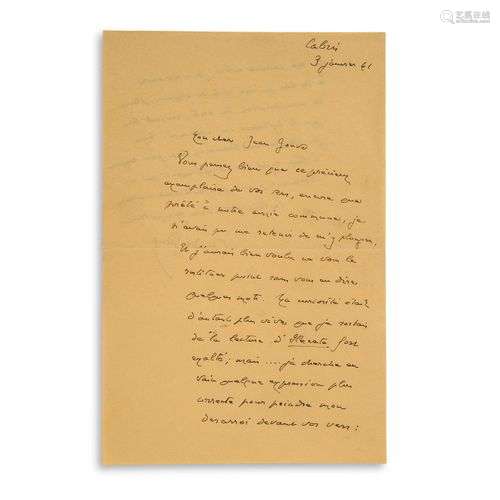 Cabris
3 janvier 41
Mon cher Jean Jouve
Vous pensez bien que ce précieux
exemplaire de vos vers, encore que
prêté à notre amie commune, je
n'avais pu me retenir de m'y plonger,
Et j'aurais bien voulu ne vous le
restituer point sans vous en dire
quelques mots. Ma curiosité était
d'autant plus vive que je sortais
de la lecture d'Hécate fort
exalté; mais ... je cherche en
vain quelque expression plus
pour peindre mon
desarroi devant vos vers: